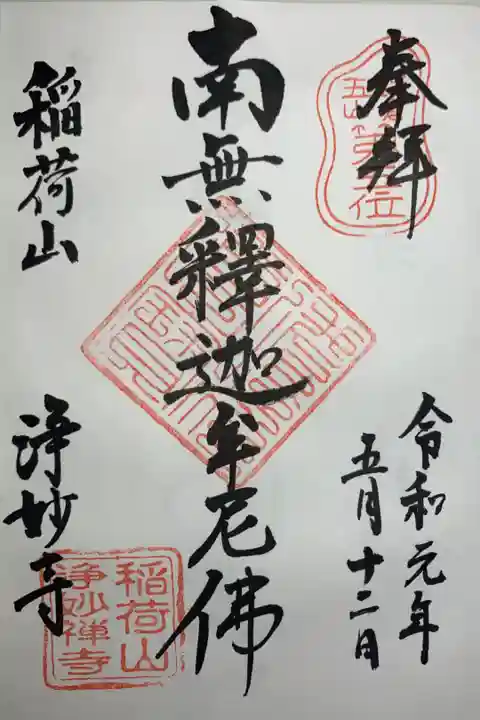 奉拝
五山第五位
令和元年
五月十二日
南無釋迦牟尼佛
稲荷山
浄妙寺
稲荷山
浄妙禅寺